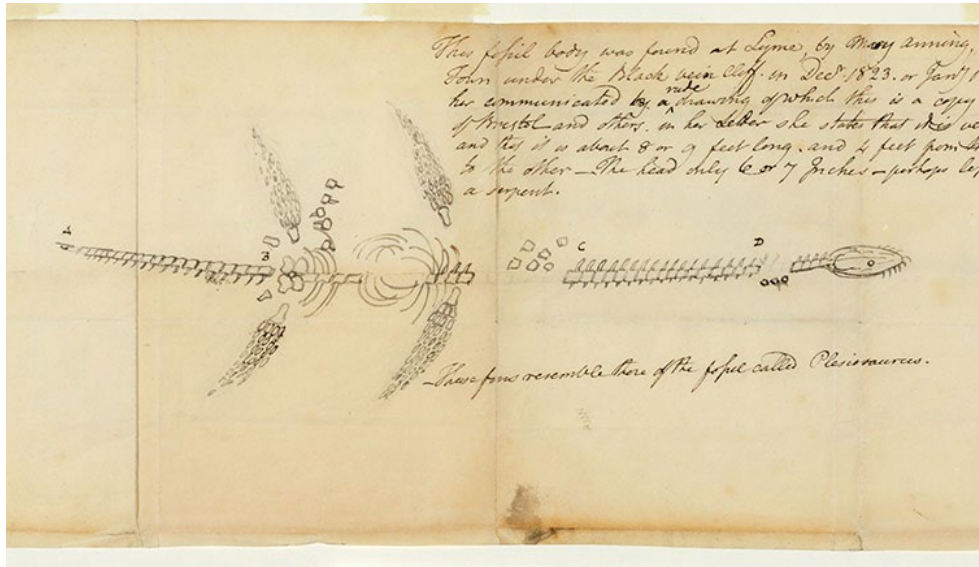 This fossil body was found at Lyme, by Mary Anning,
Town under the Black vein Cliff. in Decr. 1823. or Jany
her communicated by a rude drawing of which this is a copy
of Bristol and others. in her Letter she states that it is
and this it is about 8 or 9 feet long. and 4 feet from
to the other – The head only 6 or 7 Inches – perhaps
a serpent.
A
B
C
D
– These fins resemble those of the fossil called Plesiosaurus.